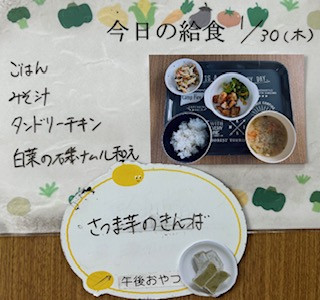 今日の給食 1/30(木)
ごはん
みそ汁
タンドリーチキン
白菜の
さつま芋のきんつば
午後おやつ